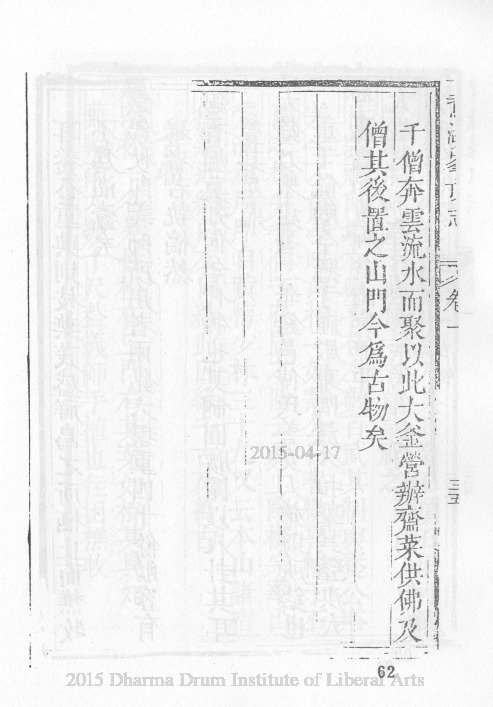 千僧奔雲流水而聚以此大釜營辦齋菜供佛及
僧其後置之山門今爲古物矣
志
卷一
三五
2015-04-17
62
2015 Dharma Drum Institute of Liberal Arts